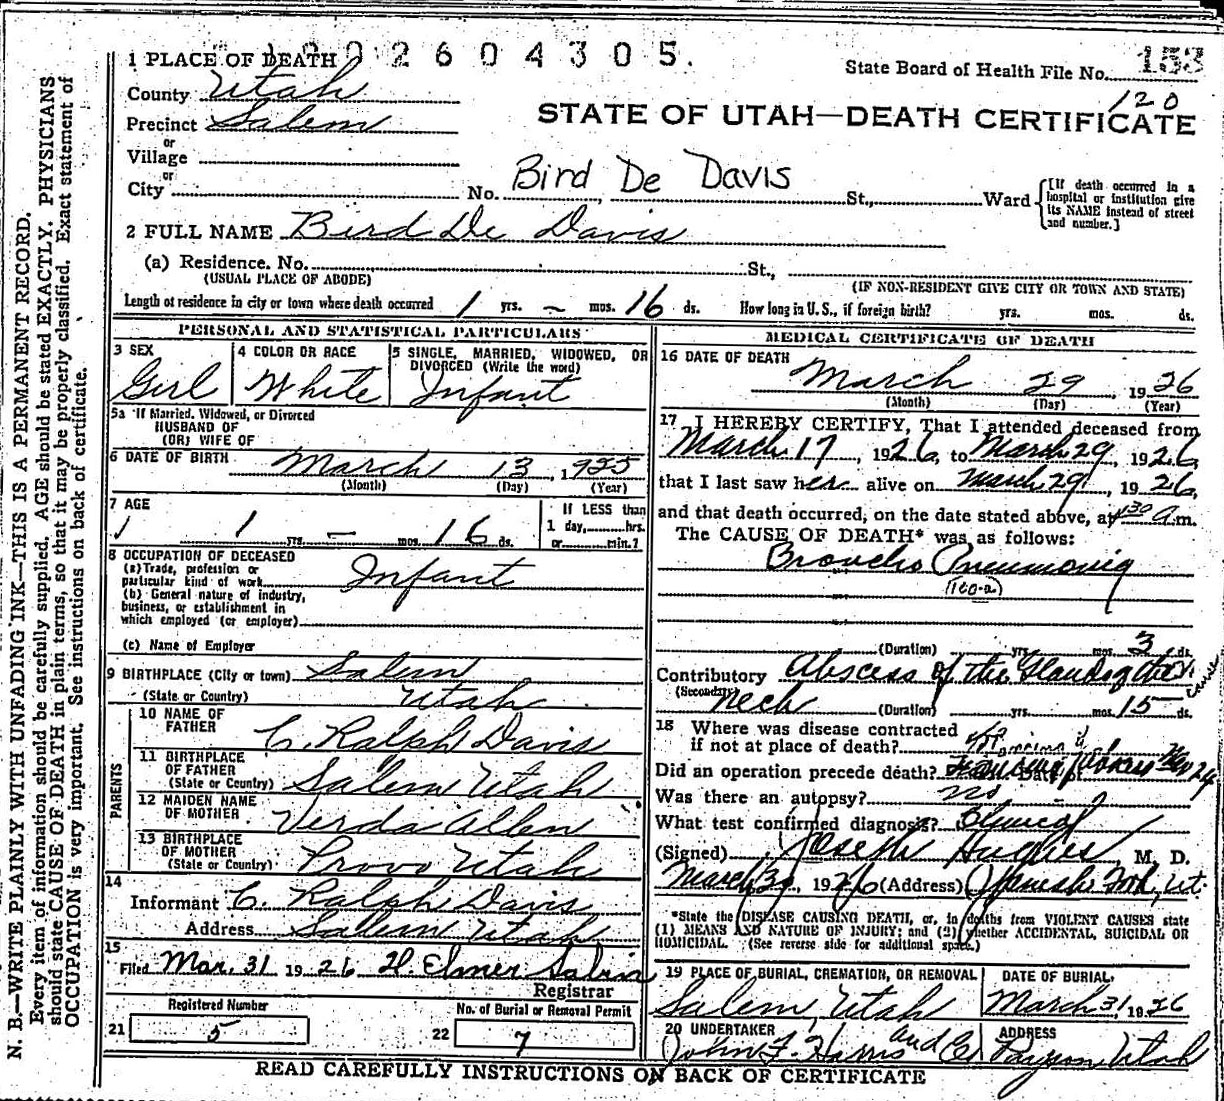 1 PLACE OF DEATH 1 9 0 2 6 0 4 3 0 5 .
State Board of Health File No. 153
120
County Utah
STATE OF UTAH—DEATH CERTIFICATE
Precinct Salem
or
Village
or
City No. Bird De Davis St., Ward [If death occurred in a hospital or institution give its NAME instead of street and number.]
2 FULL NAME Bird De Davis
(a) Residence. No. St.,
(USUAL PLACE OF ABODE) (IF NON-RESIDENT GIVE CITY OR TOWN AND STATE)
Length of residence in city or town where death occurred 1 yrs. – mos. 16 ds. How long in U. S., if foreign birth? yrs. mos. ds.
PERSONAL AND STATISTICAL PARTICULARS
3 SEX
Girl
4 COLOR OR RACE
White
5 SINGLE, MARRIED, WIDOWED, OR
DIVORCED (Write the word)
Infant
5a If Married, Widowed, or Divorced
HUSBAND OF
(OR) WIFE OF
6 DATE OF BIRTH March 13, 1925
(Month) (Day) (Year)
7 AGE
1 1 yrs. – mos. 16 ds.
If LESS than
1 day, hrs.
or min.?
8 OCCUPATION OF DECEASED
(a) Trade, profession or
particular kind of work Infant
(b) General nature of industry,
business, or establishment in
which employed (or employer)
(c) Name of Employer
9 BIRTHPLACE (City or town) Salem
(State or Country) Utah
PARENTS
10 NAME OF
FATHER C. Ralph Davis
11 BIRTHPLACE
OF FATHER
(State or Country) Salem Utah
12 MAIDEN NAME
OF MOTHER Verda Allen
13 BIRTHPLACE
OF MOTHER
(State or Country) Provo Utah
14
Informant C. Ralph Davis
Address Salem Utah
15
Filed Mar. 31 1926 H. Elmer
Registrar
Registered Number
21 5
No. of Burial or Removal Permit
22 7
MEDICAL CERTIFICATE OF DEATH
16 DATE OF DEATH
March 29 1926
(Month) (Day) (Year)
17 I HEREBY CERTIFY, That I attended deceased from
March 17, 1926, to March 29, 1926,
that I last saw her alive on March 29, 1926,
and that death occurred, on the date stated above, at 4 30 a.m.
The CAUSE OF DEATH* was as follows:
Broncho Pneumonia
(100-a)
(Duration) yrs. mos. 3 ds.
Contributory Abscess of the Glands of the
(Secondary) neck (Duration) yrs. mos. 15 ds.
18 Where was disease contracted
if not at place of death?
Did an operation precede death? Date of
Was there an autopsy? no
What test confirmed diagnosis? Clinical
(Signed) Joseph Hughes, M. D.
March 30, 1926 (Address) Spanish Fork, Ut.
*State the DISEASE CAUSING DEATH, or, in deaths from VIOLENT CAUSES state
(1) MEANS AND NATURE OF INJURY; and (2) whether ACCIDENTAL, SUICIDAL OR
HOMICIDAL. (See reverse side for additional space.)
19 PLACE OF BURIAL, CREMATION, OR REMOVAL
Salem, Utah
DATE OF BURIAL.
March 31, 1926
20 UNDERTAKER
John F. Harris and Co
ADDRESS
Payson Utah
READ CAREFULLY INSTRUCTIONS ON BACK OF CERTIFICATE
N. B.—WRITE PLAINLY WITH UNFADING INK—THIS IS A PERMANENT RECORD.
Every item of information should be carefully supplied. AGE should be stated EXACTLY. PHYSICIANS
should state CAUSE OF DEATH in plain terms, so that it may be properly classified. Exact statement of
OCCUPATION is very important. See instructions on back of certificate.